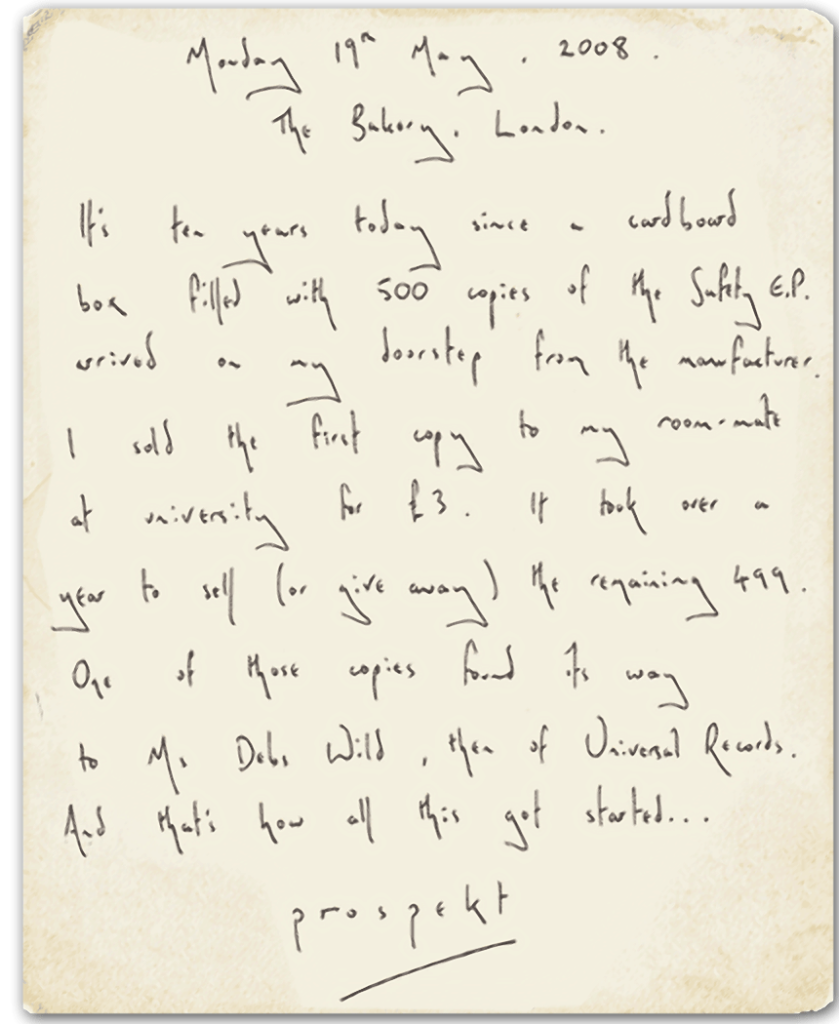 Monday 19th May. 2008.
The Bakery. London.
It's ten years today since a cardboard
box filled with 500 copies of the Safety E.P.
arrived on my doorstep from the manufacturer.
I sold the first copy to my room-mate
at university for £3. It took over a
year to sell (or give away) the remaining 499.
One of those copies found its way
to Ms Debs Wild, then of Universal Records.
And that's how all this got started...
prospekt